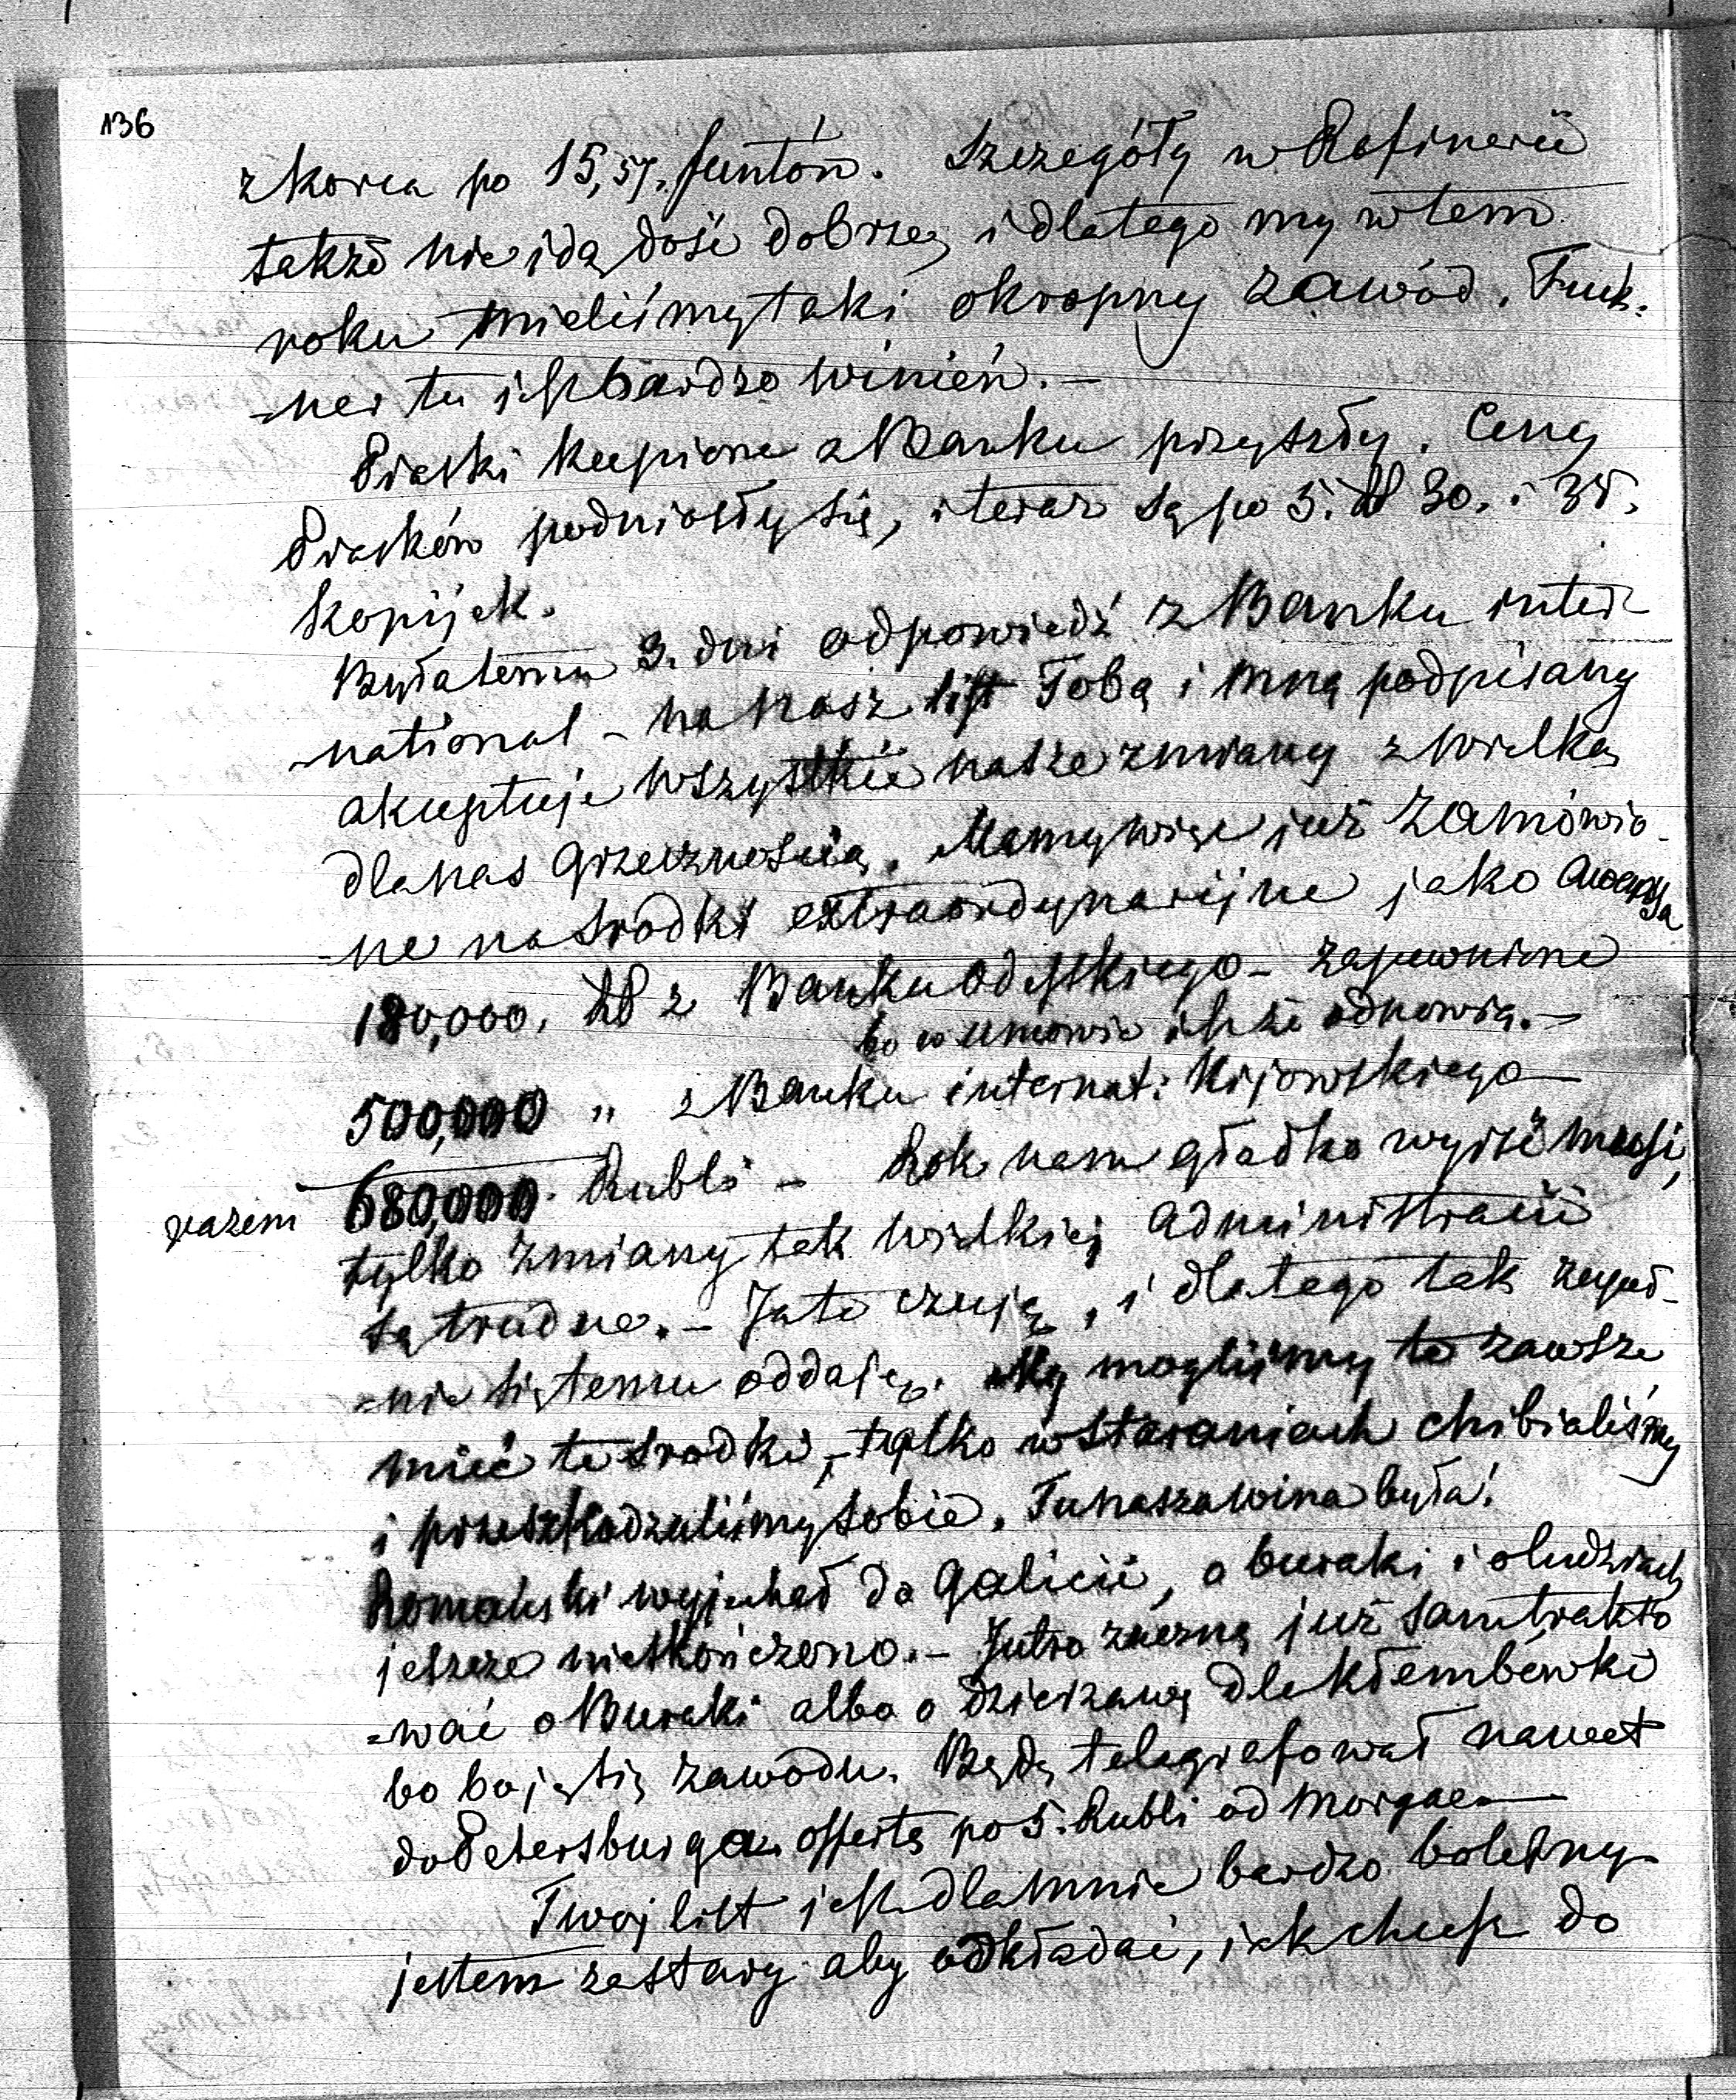 136
z korca po 15,57. funtów. Szczegóły w Rafinerii
także nie idą dość dobrze, i dlatego my w tem
roku mieliśmy taki okropny zawód. Fuck-
-ner tu jest bardzo winień. -
Piaski kupione z Banku przyszły. Ceny
Piasków podniosły się, i teraz są po 5. Rb 30. i 35.
kopijek.
Była temu 3. dni odpowiedź z Banku inter-
-national - na nasz list Tobą i mną podpisany
akceptuje wszystkie nasze zmiany z wielką
dla nas grzecznością. Mamy więc już zamówio-
-ne na środki extraordynaryjne jako awansa
180,000. Rb z Banku Odeskiego - zapewnione
bo w umowie jest że odnowią. -
500,000 " z Banku internat: Kijowskiego
razem 680,000. Rubli - Rok nam gładko wyjść musi,
tylko zmiany tak wielkiej administracii
są trudne. - Ja to czuję, i dlatego tak zupeł-
-nie się temu oddaję. My mogliśmy to zawsze
mieć te środki, - tylko w staraniach chibialiśmy
i przeszkadzaliśmy sobie. Tu nasza wina była!
Romański wyjechał do Galicii, o buraki i o ludziach
jeszcze nieskończono. - Jutro zacznę już sam trakto
-wać o Buraki albo o dzierżawę dla Kłembówki
bo boję się zawodu. Będę telegrafował nawet
do Petersburga. offertę po 5. Rubli od Morga
Twoj list jest dla mnie bardzo bolesny
jestem za stary aby odkładać, jak chcesz do